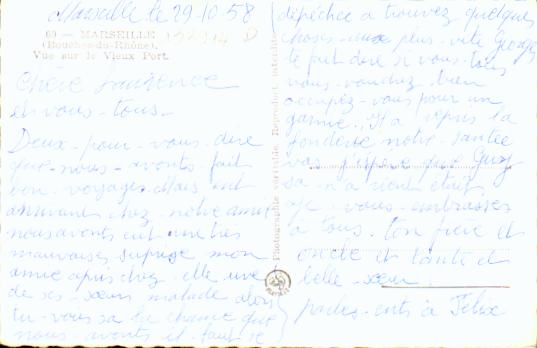 Marseille le 29-10-58
69 - MARSEILLE
(Bouches-du-Rhône).
Vue sur le Vieux Port.
Chère Laurence
et vous - tous -
Deux - pour - vous - dire
que - nous - avonts - fait
bon - voyage. Mais ent
arrivant chez - notre amie
nous avonts eut une très
mauvaises suprise mon
amie apris chez - elle une
de ses - sœurs malade alors
tu - vous sa la chance que
nous - avonts il - faut se
dépéchée a trouvez quelques
choses - aux plus - vite Georges
te fait dire si vous - tous
vous - voudrez bien
occupez - vous pour un
la
fonderie notre - santée
vas j'espère que Guy
sa - n'a rient était,
je - vous - embrasses
a tous. ton frère et
oncle et tante et
belle - sœur.
parles - ents à Félix
Photographie véritable. Reproduct. interdite